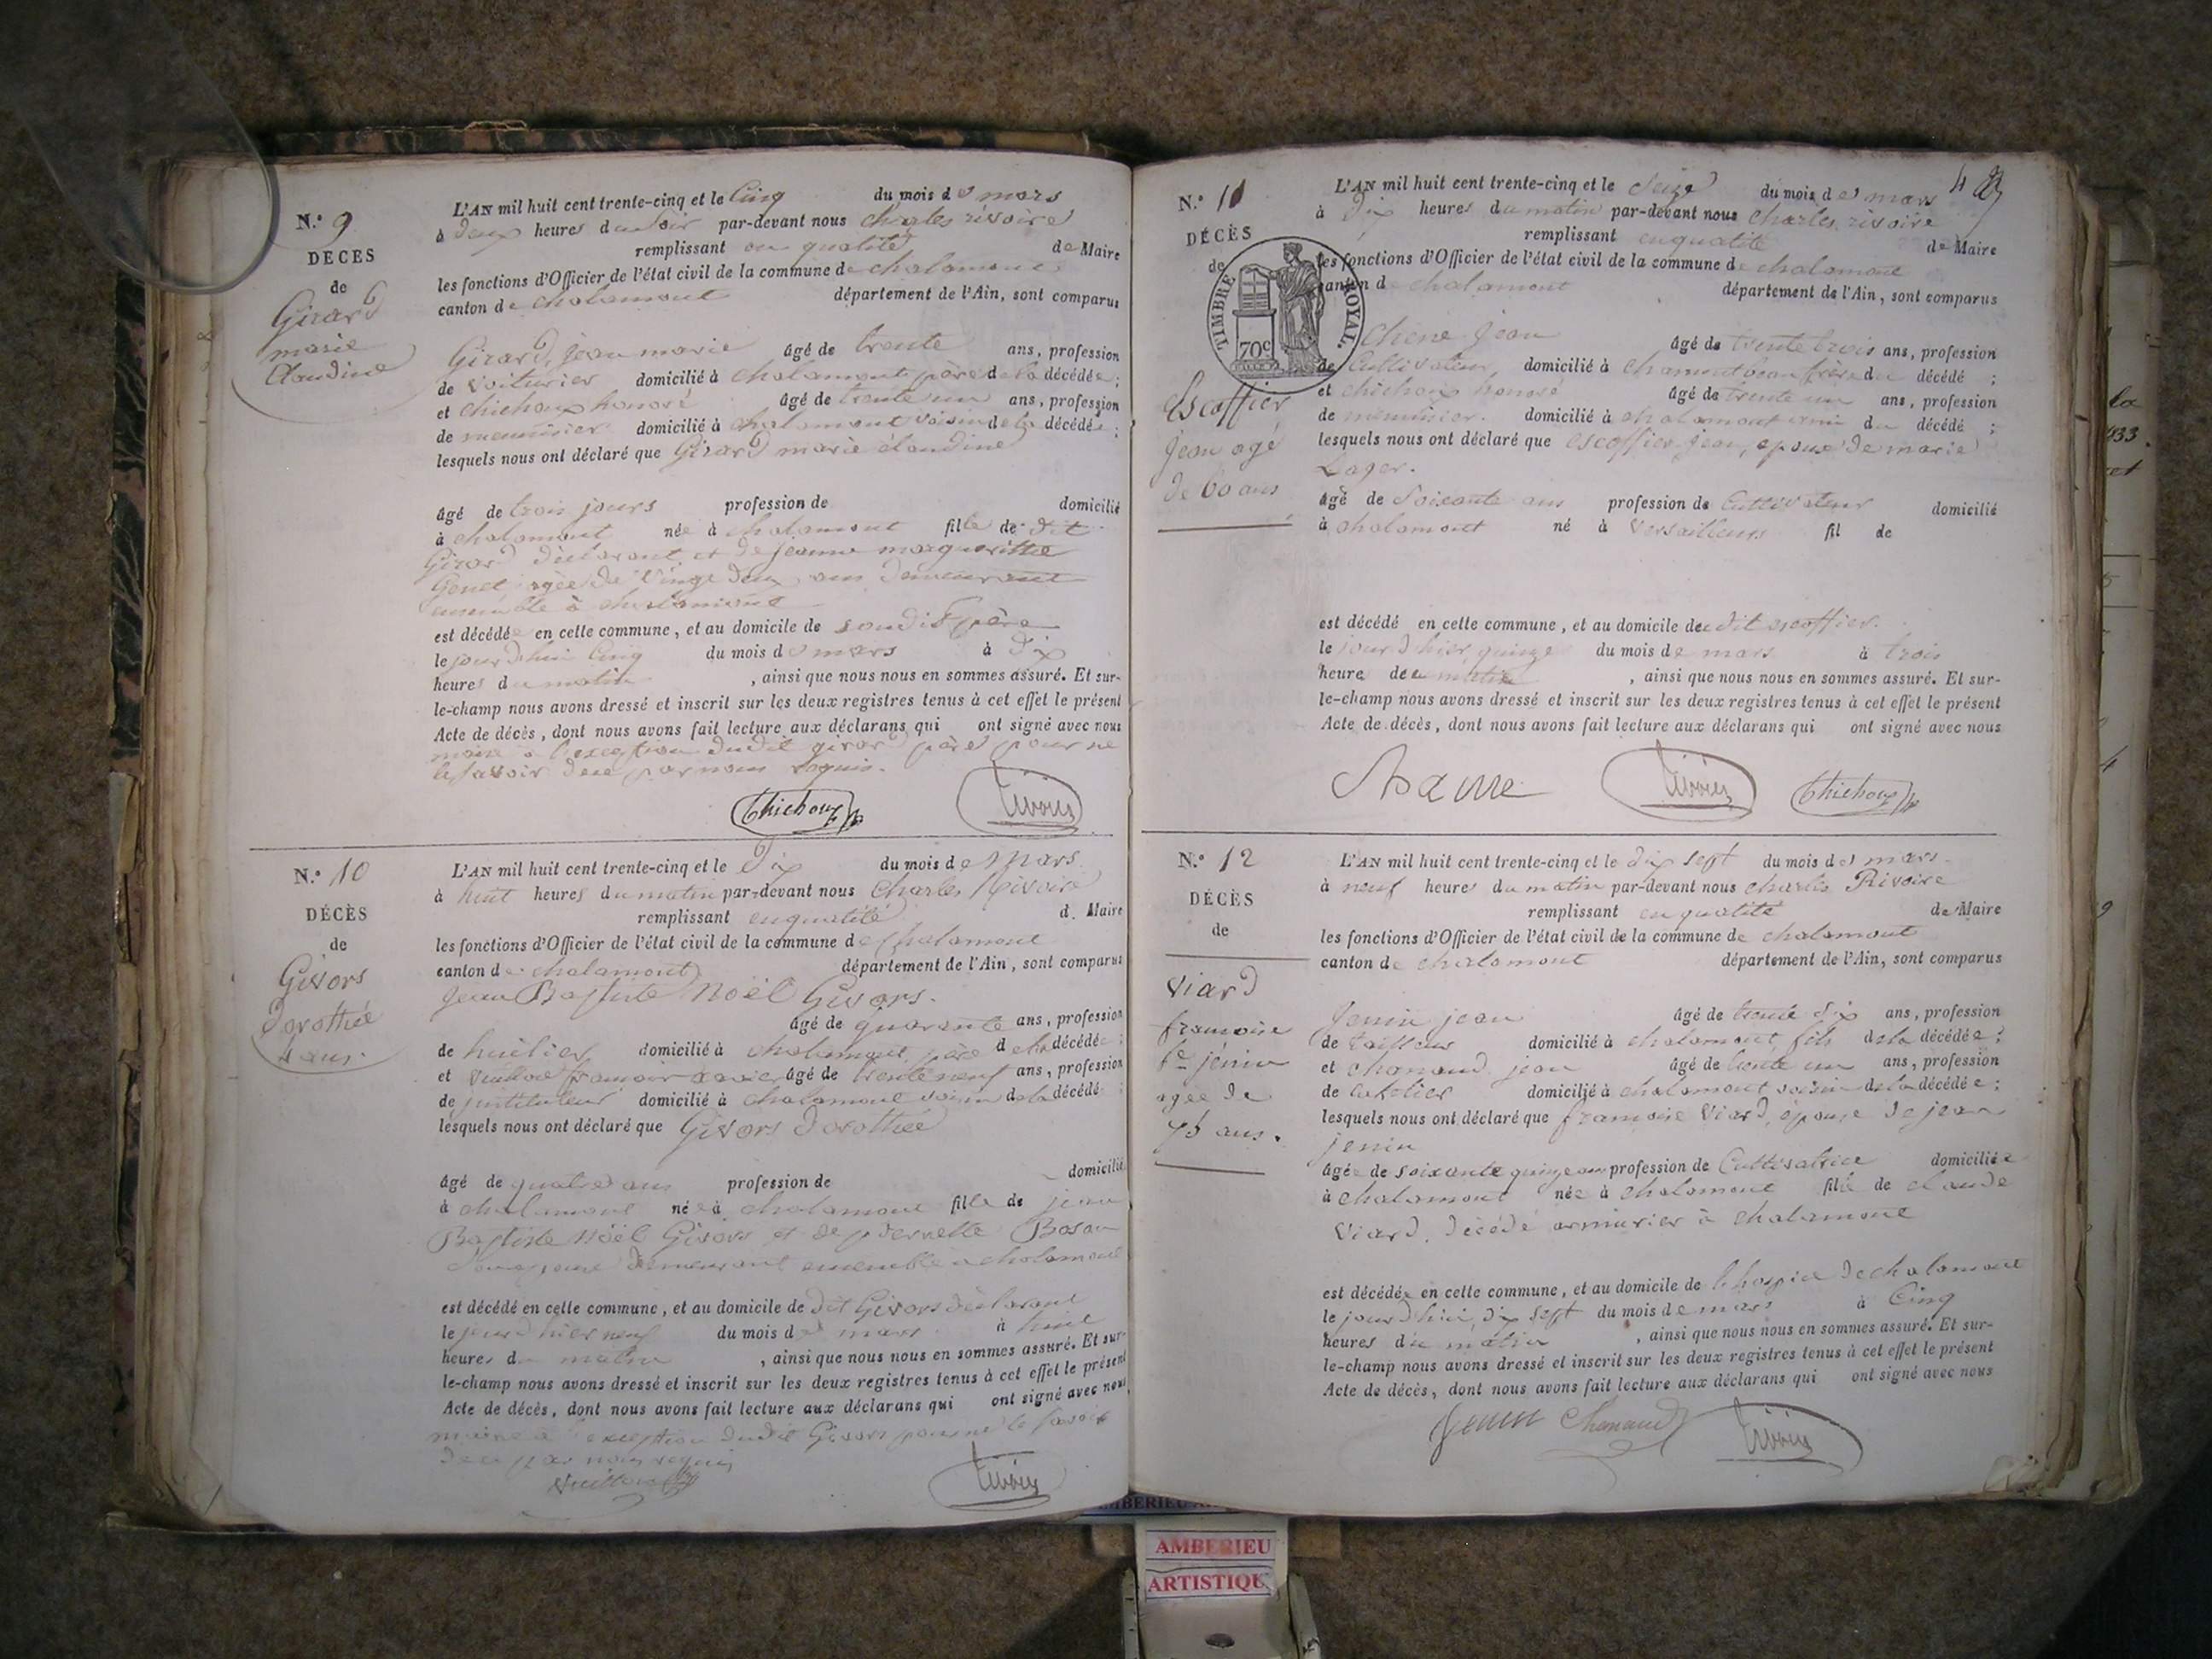 N.º 9
DÉCÈS
de
Girard
marie
Claudine
L'AN mil huit cent trente-cinq et le Cinq du mois de mars
à deux heures du soir par-devant nous charles rivoire
remplissant en qualité de Maire
les fonctions d'Officier de l'état civil de la commune de chalamont
canton de chalamont département de l'Ain, sont comparus
Girard, jean marie âgé de trente ans, profession
de voiturier domicilié à chalamont père de la décédée;
et chichoux honoré âgé de trente un ans, profession
de menuisier domicilié à chalamont voisin de la décédée;
lesquels nous ont déclaré que Girard marie claudine
âgé de trois jours profession de domicilié
à chalamont née à chalamont fille de dit
Girard déclarant et de jeanne margueritte
agée de vingt deux ans demeurant
ensemble à chalamont
est décédée en cette commune, et au domicile de son dit père
le jourdhui Cinq du mois de mars à dix
heures du matin, ainsi que nous nous en sommes assuré. Et sur-
le-champ nous avons dressé et inscrit sur les deux registres tenus à cet effet le présent
Acte de décès, dont nous avons fait lecture aux déclarans qui ont signé avec nous
maire à l'exception dudit girard père pour ne
le savoir de ce par nous requis.
Chichoux
Rivoire
N.º 10
DÉCÈS
de
Givors
dorothée
4 ans.
L'AN mil huit cent trente-cinq et le Dix du mois de Mars
à huit heures du matin par-devant nous Charles Rivoire
remplissant en qualité d. Maire
les fonctions d'Officier de l'état civil de la commune de Chalamont
canton de chalamont département de l'Ain, sont comparus
Jean Baptiste Noël Givors.
âgé de quarante ans, profession
de huilier domicilié à chalamont, père de la décédée;
et françois xavier âgé de trente neuf ans, profession
de instituteur domicilié à chalamont voisin de la décédé
lesquels nous ont déclaré que Givors dorothée
âgé de quatre ans profession de domicilié
à chalamont née à chalamont fille de jean
Baptiste Noël Givors et de pernette
son epouse demeurant ensemble à chalamont
est décédé en cette commune, et au domicile de dit Givors déclarant
le jourdhier neuf du mois de mars à huit
heures du matin, ainsi que nous nous en sommes assuré. Et sur-
le-champ nous avons dressé et inscrit sur les deux registres tenus à cet effet le présent
Acte de décès, dont nous avons fait lecture aux déclarans qui ont signé avec nous
maire à l'exception dudit Givors pour ne le savoir
de ce par nous requis
Rivoire
N.º 11
DÉCÈS
de
TIMBRE ROYAL.
70c
Escoffier
jean agé
de 60 ans
L'AN mil huit cent trente-cinq et le seize du mois de mars
à Dix heures du matin par-devant nous charles rivoire
remplissant en qualité de Maire
les fonctions d'Officier de l'état civil de la commune de chalamont
canton de chalamont département de l'Ain, sont comparus
jean âgé de trente trois ans, profession
de Cultivateur, domicilié à chalamont beau frère du décédé;
et chichoux honoré âgé de trente un ans, profession
de menuisier. domicilié à chalamont ami du décédé;
lesquels nous ont déclaré que escoffier jean, epoux de marie
Lager.
âgé de soixante ans profession de Cultivateur domicilié
à chalamont né à Versailleux fil de
est décédé en cette commune, et au domicile de dit escoffier.
le jourdhier quinze du mois de mars à trois
heure de matin, ainsi que nous nous en sommes assuré. Et sur-
le-champ nous avons dressé et inscrit sur les deux registres tenus à cet effet le présent
Acte de décès, dont nous avons fait lecture aux déclarans qui ont signé avec nous
Rivoire
Chichoux
N.º 12
DÉCÈS
de
Viard
françoise
fe jénin
agée de
75 ans.
L'AN mil huit cent trente-cinq et le dix sept du mois de mars
à neuf heures du matin par-devant nous charles Rivoire
remplissant en qualité de Maire
les fonctions d'Officier de l'état civil de la commune de chalamont
canton de chalamont département de l'Ain, sont comparus
Jenin jean âgé de trente six ans, profession
de tailleur domicilié à chalamont, fils de la décédée;
et chanaud jean âgé de trente un ans, profession
de domicilié à chalamont voisin de la décédée;
lesquels nous ont déclaré que françoise Viard, épouse de jean
jenin
âgée de soixante quinze ans profession de Cultivatrice domiciliée
à chalamont née à chalamont fille de claude
Viard, décédé armurier à chalamont
est décédée en cette commune, et au domicile de l'hospice de chalamont
le jourdhui, dix sept du mois de mars à Cinq
heures du matin, ainsi que nous nous en sommes assuré. Et sur-
le-champ nous avons dressé et inscrit sur les deux registres tenus à cet effet le présent
Acte de décès, dont nous avons fait lecture aux déclarans qui ont signé avec nous
Jenin Chanaud Rivoire
AMBERIEU
ARTISTIQU